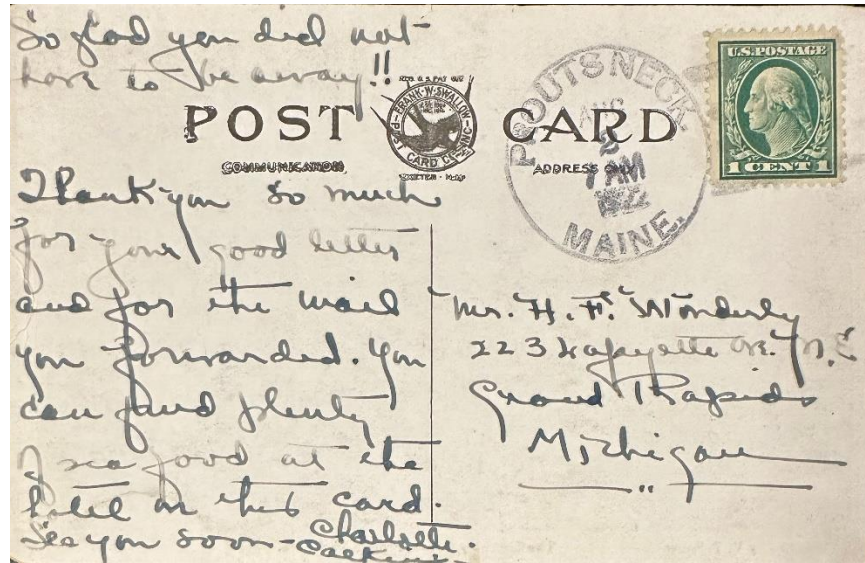 So glad you did not
have to be away!!
POST CARD
FRANK·W·SWALLOW
CARD CO
INC
EXETER
COMMUNICATION
ADDRESS ONLY
PROUTSNECK.
AUG
2
7 AM
1922
MAINE.
U.S.POSTAGE
1 CENT 1
Thank-you so much
for your good letter
and for the mail
you forwarded. You
can find plenty
of sea food at the
hotel on this card.
See you soon - Charlotte
Mr. H. F. Wonderly
223 Lafayette Ave. N.E
Grand Rapids
Michigan